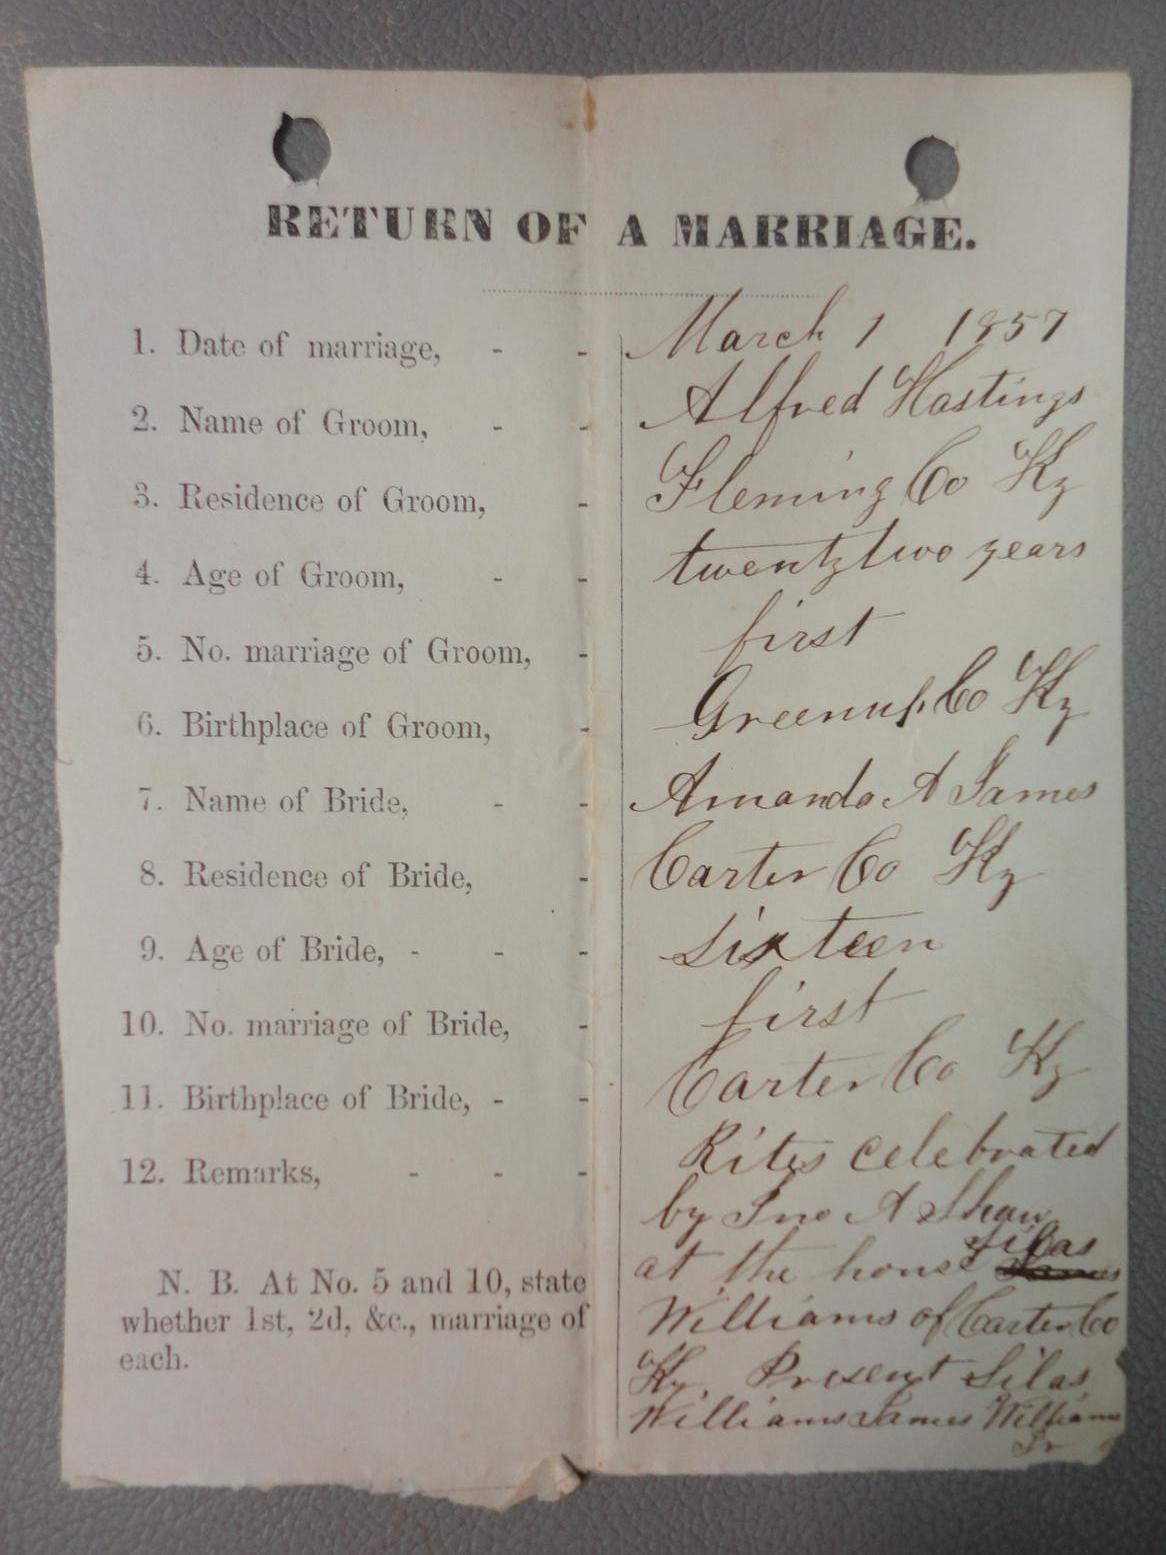 RETURN OF A MARRIAGE.
1. Date of marriage, - - March 1 1857
2. Name of Groom, - - Alfred Hastings
3. Residence of Groom, - Fleming Co Ky
4. Age of Groom, - - twenty two years
5. No. marriage of Groom, - first
6. Birthplace of Groom, - Greenup Co Ky
7. Name of Bride, - - Amanda A James
8. Residence of Bride, - Carter Co Ky
9. Age of Bride, - - - sixteen
10. No. marriage of Bride, - first
11. Birthplace of Bride, - - Carter Co Ky
12. Remarks, - - - Rites celebrated
by Jno A Shaw
at the house Silas
N. B. At No. 5 and 10, state
whether 1st, 2d, &c., marriage of
each.
Williams of Carter Co
Ky. Present Silas
Williams James Williams